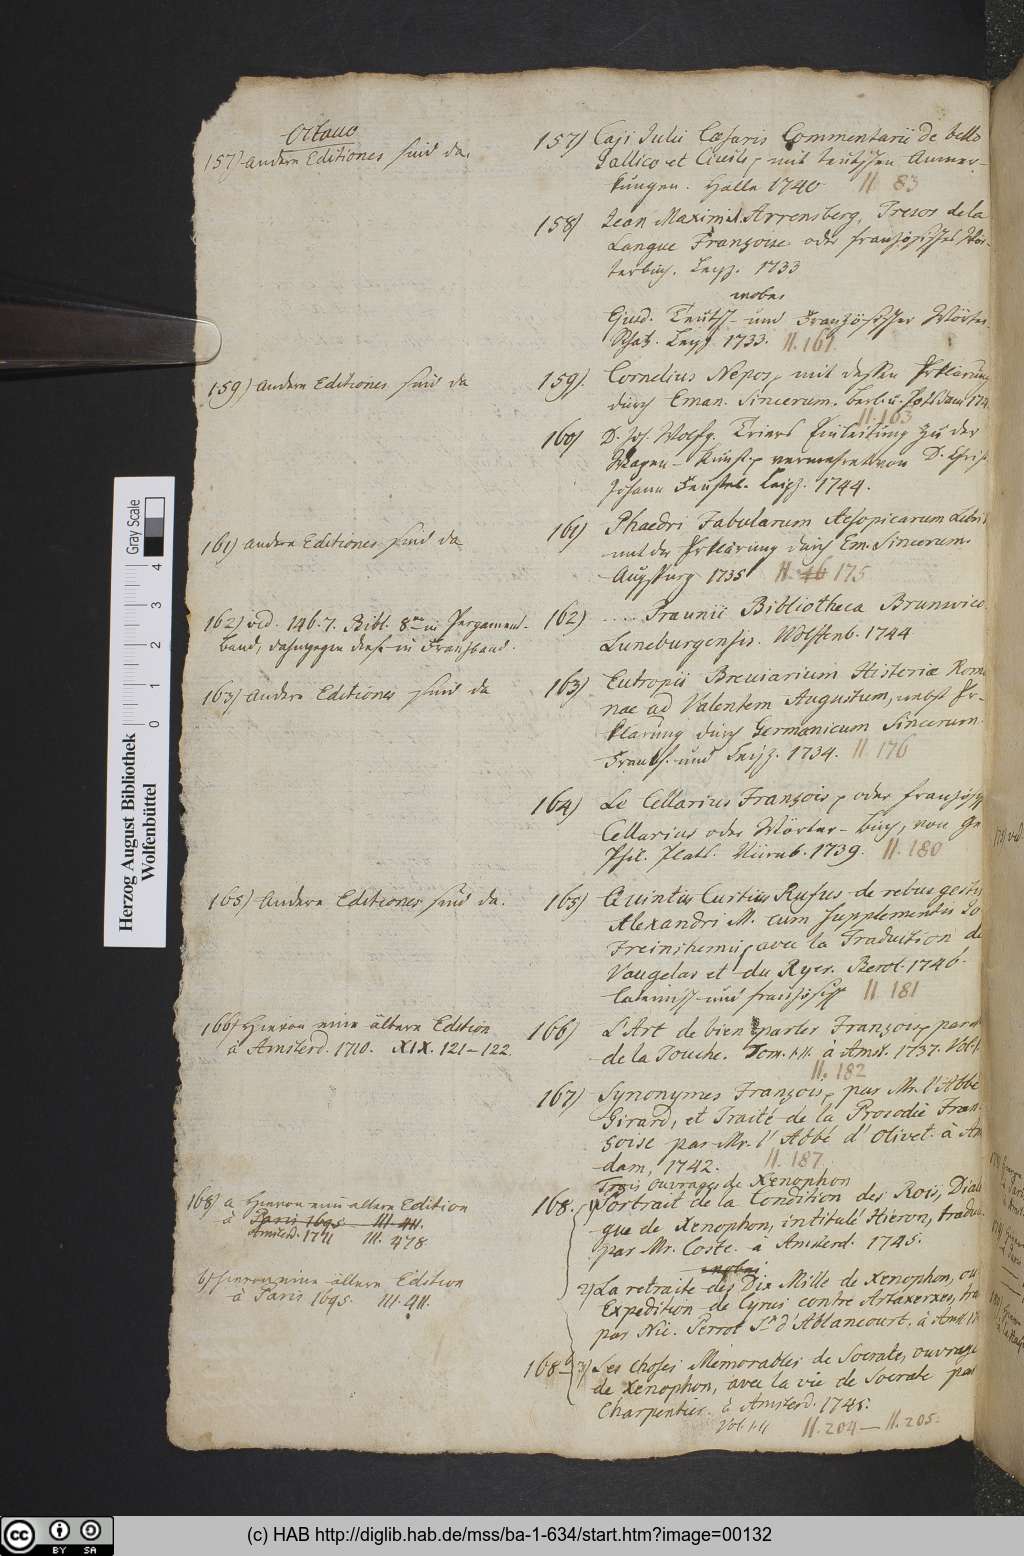 Octavo
157) Andere Editiones sind da.
159) Andere Editiones sind da
161) Andere Editiones sind da
162) vid. 146.7. Bibl. 8vo in Pergament-
Band, dahingegen diese in Franzband.
163) Andere Editiones sind da
165) Andere Editiones sind da.
166) Hievon eine ältere Edition
à Amsterd. 1710. XIX. 121-122.
168) a Hievon eine ältere Edition
à Paris 1695. III. 411.
Amsterd. 1711 III. 478
b) Hievon eine ältere Edition
à Paris 1695. III. 411.
157) Caji Julii Caesaris Commentarii de bello
Gallico et Civili, mit teutschen Anmer-
kungen. Halle 1740 II 83
158) Jean Maximil. Arrensberg, Tresor de la
Langue Françoise oder französisches Wör-
terbuch. Leipz. 1733
wobei
Ejusd. Teutsch- und Französischer Wörter-
Schatz. Leipz. 1733. II. 161.
159). Cornelius Nepos, mit dessen Erklärung
durch Eman. Sincerum. Berl. u. Potsdam 174
II. 163
160) D. Joh. Wolfg. Triers Einleitung zu der
Wapen-Kunst, vermehret von D. Christ.
Johann Feustel. Leipz. 1744.
161) Phaedri Fabularum Aesopicarum Libri
mit der Erklärung durch Em. Sincerum.
Augspurg 1735 II. 46 175
162) .... Praunii Bibliotheca Brunsvico
Luneburgensis. Wolffenb. 1744
163) Eutropii Breviarium Historiae Roma
nae ad Valentem Augustum, nebst Er-
klärung durch Germanicum Sincerum.
Franckf. und Leipz. 1734. II 176
164) Le Cellarius François, oder französisch
Cellarius oder Wörter-Buch, von Ge
Phil. Platz. Nürnb. 1739. II. 180
165) Quintus Curtius Rufus de rebus gestis
Alexandri M. cum Supplementis Jo
Freinshemii, avec la Traduction de
Vaugelas et du Ryer. Berol. 1746.
lateinisch und französisch II 181
166) L'Art de bien parler François, par
de la Touche. Tom. I.II. à Amst. 1737. Vol.
II. 182
167) Synonymes François, par Mr. l'Abbé
Girard, et Traité de la Prosodie Fran-
çoise par Mr. l'Abbé d'Olivet. à Am
dam, 1742. II. 187
Trois ouvrages de Xenophon
168. 1) Portrait de la Condition des Rois, Dialo
gue de Xenophon, intitulé Hieron, tradu
par Mr. Coste. à Amsterd. 1745.
wobei
2) La retraite des Dix Mille de Xenophon, ou
Expedition de Cyrus contre Artaxerxes, tra
par Nic. Perrot Sr. d'Ablancourt. à Amst. 17
168b 3) Les choses Memorables de Socrate, ouvrage
de Xenophon, avec la vie de Socrate par
Charpentier. à Amsterd. 1745.
Vol. I-II II. 204 — II. 205.
Gray Scale
0 1 2 3 4
Herzog August Bibliothek
Wolfenbüttel
cc BY SA
(c) HAB http://diglib.hab.de/mss/ba-1-634/start.htm?image=00132